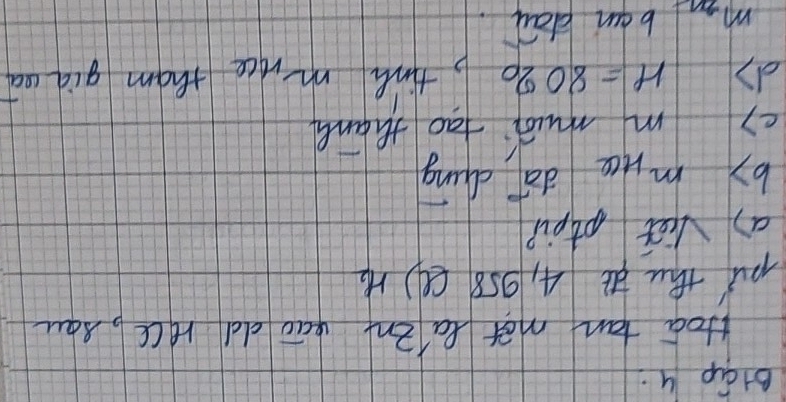 BTập 4:
Hoà tan một lá Zn vào dd HCl, sau
pứ thu đc 4,958 (l) H₂
a) Viết ptpứ
b) m HCl đã dùng
c) m muối tạo thành
d) H = 80%, tính m HCl tham gia và
m Zn ban đầu.